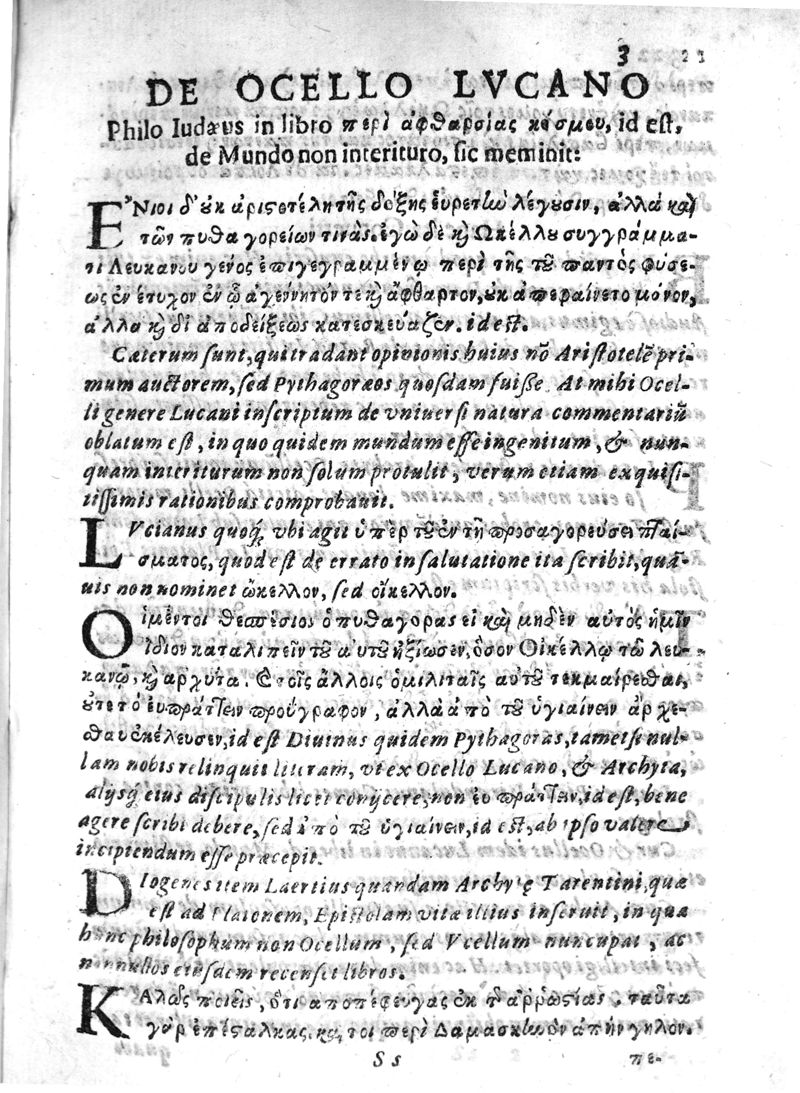 3 23
DE OCELLO LVCANO
Philo Iudæus in libro περὶ ἀφθαρσίας κόσμου, id est,
de Mundo non interituro, sic meminit:
Ε῎Νιοι δ' ουκ αριστοτέλη τῆς δόξης ἑυρετὼ λέγουσιν, αλλὰ καὶ
τῶν πυθαγορείων τινάς. εγὼ δὲ κὶ Ωκέλλου συγγράμμα-
τι Λευκανου γένος ἐπιγεγραμμένῳ περὶ τῆς τοῦ παντὸς φύσε-
ως ἐν έτυχον ἐν ᾧ ἀγέννητόν τε κὶ ἄφθαρτον, ουκ απεραίνετο μόνον,
αλλα κὶ δι αποδείξεως κατεσκευάζεν. id est.
Cæterum sunt, qui tradant opinionis huius nõ Aristotelẽ pri-
mum auctorem, sed Pythagoræos quosdam fuisse. At mihi Ocel-
li genere Lucani inscriptum de vniuersi natura commentariũ
oblatum est, in quo quidem mundum esse ingenitum, & nun-
quam interiturum non solum protulit, verum etiam exquisi-
tissimis rationibus comprobauit.
LVcianus quoq́, vbi agit ὑπὲρ τοῦ ἐν τῇ προσαγορεύσει πταί-
σματος, quod est de errato in salutatione ita scribit, quã-
uis non nominet ὤκελλον, sed οἴκελλον.
Οἱμέντοι θεσπέσιος ὁ πυθαγορας εἰ καὶ μηδὲν αυτὸς ἡμῖν
ἴδιον καταλιπεῖν τοῦ αυτοῦ ἠξίωσεν, ὅσον Οἰκέλλῳ τῷ λευ-
κανῷ, κὶ αρχύτα. τοῖς ἄλλοις ὁμιλιταῖς αὐτοῦ τεκμαίρεσθαι,
ουτε τὸ ευπράττειν προύγραφον, ἀλλὰ απὸ τοῦ ὑγιαίνειν αρχε-
θαι εκέλευσεν, id est Diuinus quidem Pythagoras, tametsi nul-
lam nobis relinquit literam, vt ex Ocello Lucano, & Archyta,
alijsq́ eius discipulis licet conijcere, non ἐυ πράττειν, id est, bene
agere scribi debere, sed ἀπὸ τοῦ ὑγιαίνειν, id est, ab ipso valere
incipiendum esse præcepit.
DIogenes item Laertius quandam Archytę Tarentini, quæ
est ad Platonem, Epistolam vitæ illius inseruit, in qua
hunc philosophum non Ocellum, sed Vcellum nuncupat, ac
nonnullos eiusdem recenset libros.
ΚΑλῶς ποιεῖς, ὅτι αποπέφευγας ἐκ τ ἀῤῥωστίας. ταῦτα
γὰρ ἐπέσταλκας, τοι περὶ Δαμασκὶωὸν ἀπήνγηλον.
S s πε-